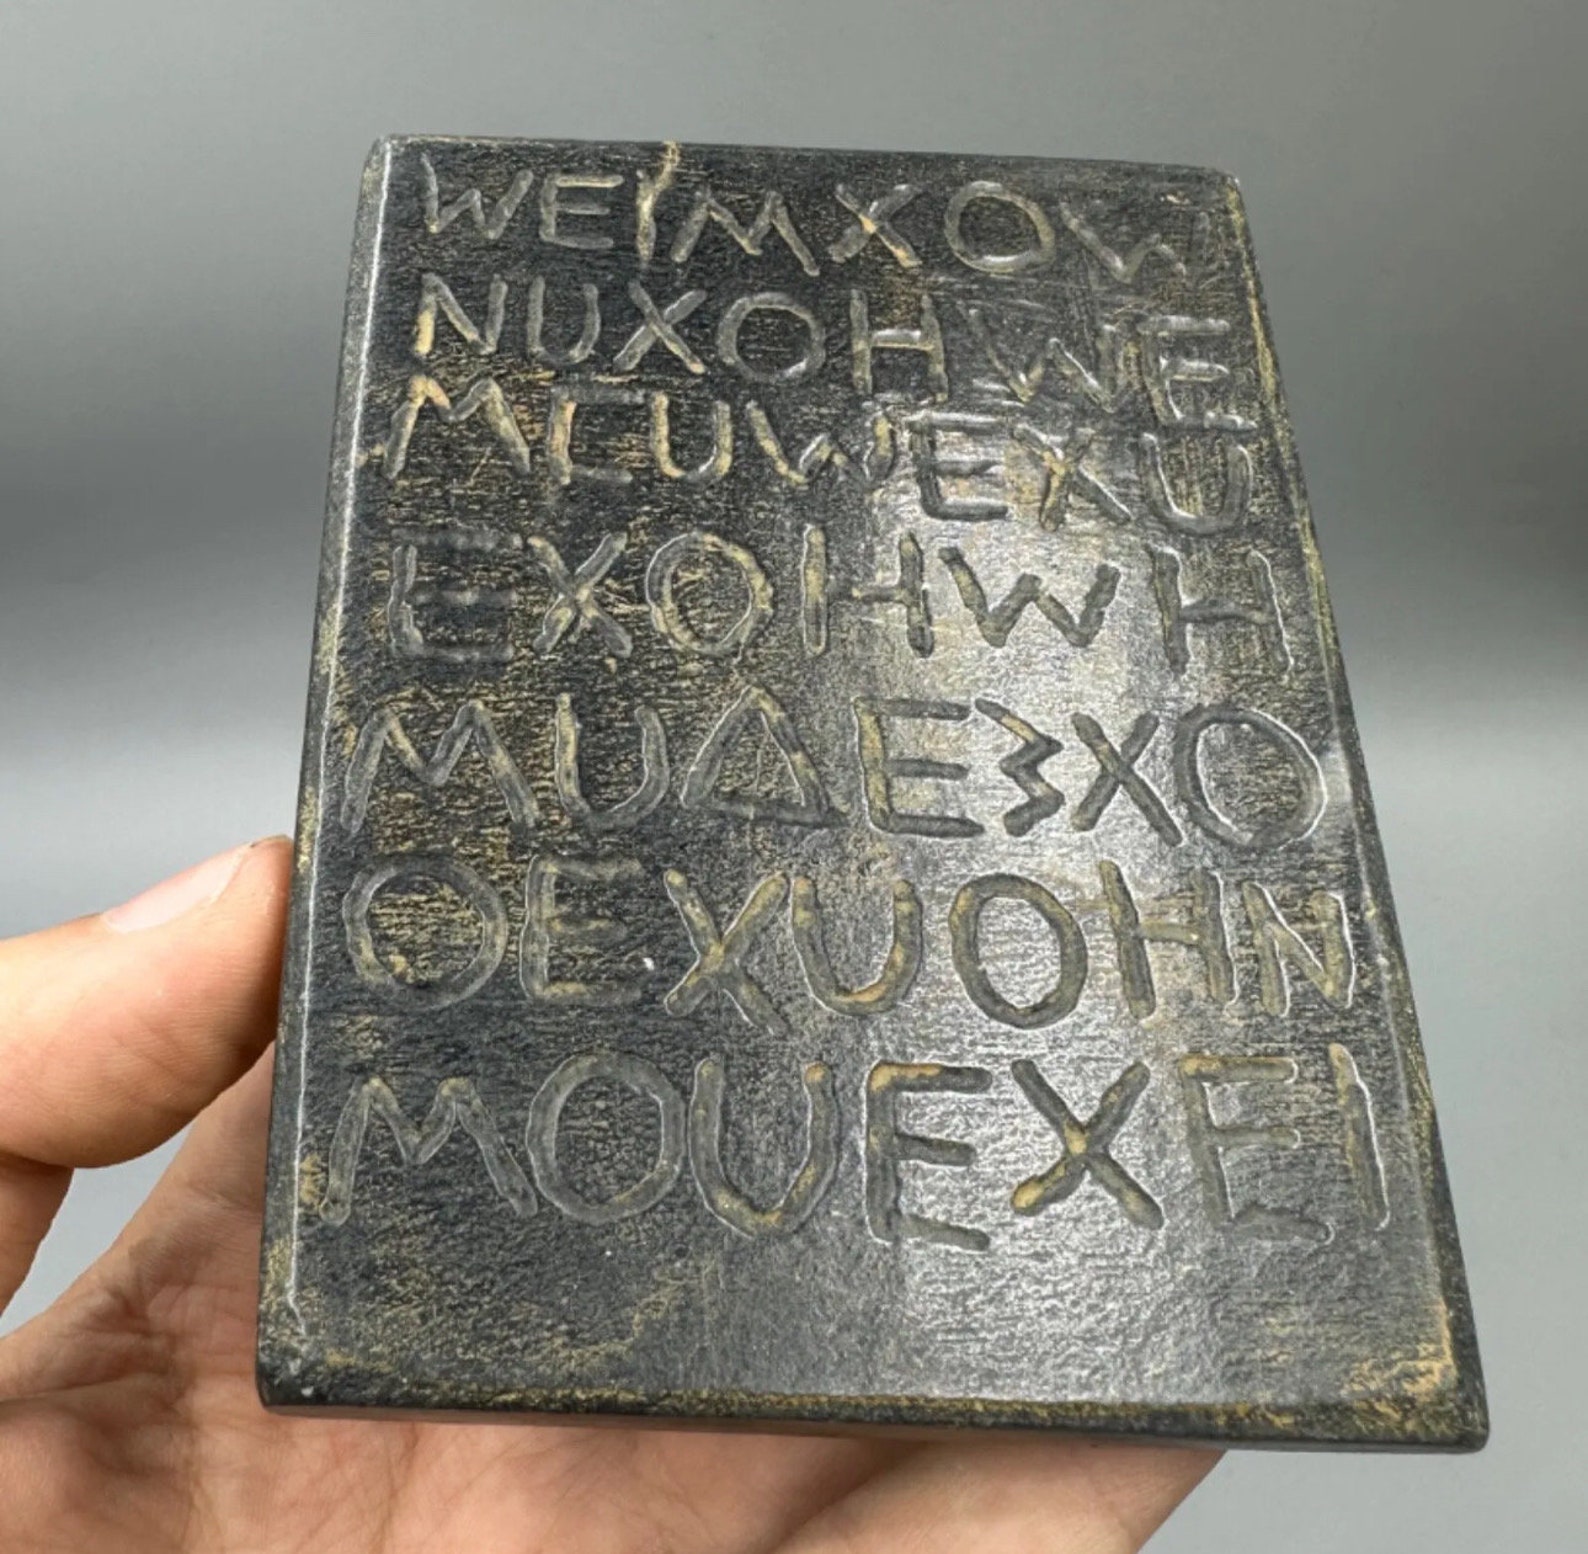 WEYMXOW
NUXOHWE
MEUWEXU
EXOIHWH
MUΔEƷXO
OEXUOHN
MOUEXEI